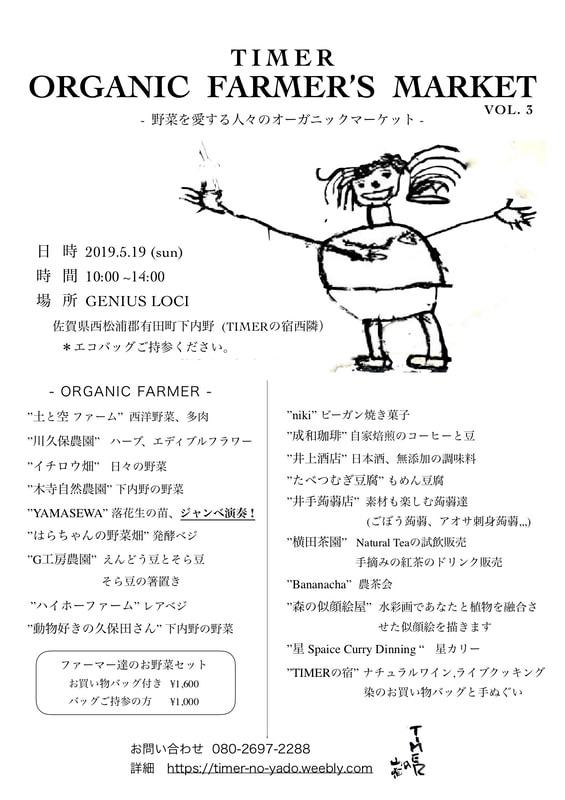 TIMER
ORGANIC FARMER'S MARKET
VOL. 3
- 野菜を愛する人々のオーガニックマーケット -
日 時 2019.5.19 (sun)
時 間 10:00 ~14:00
場 所 GENIUS LOCI
佐賀県西松浦郡有田町下内野 (TIMERの宿西隣)
＊エコバッグご持参ください。
- ORGANIC FARMER -
”土と空 ファーム” 西洋野菜、多肉
”川久保農園” ハーブ、エディブルフラワー
”イチロウ畑” 日々の野菜
”木寺自然農園” 下内野の野菜
”YAMASEWA” 落花生の苗、ジャンベ演奏！
”はらちゃんの野菜畑” 発酵ベジ
”G工房農園” えんどう豆とそら豆
そら豆の箸置き
”ハイホーファーム” レアベジ
”動物好きの久保田さん” 下内野の野菜
ファーマー達のお野菜セット
お買い物バッグ付き ¥1,600
バッグご持参の方 ¥1,000
”niki” ビーガン焼き菓子
”成和珈琲” 自家焙煎のコーヒーと豆
”井上酒店” 日本酒、無添加の調味料
”たべつむぎ豆腐” もめん豆腐
”井手蒟蒻店” 素材も楽しむ蒟蒻達
(ごぼう蒟蒻、アオサ刺身蒟蒻,,,)
”横田茶園” Natural Teaの試飲販売
手摘みの紅茶のドリンク販売
”Bananacha” 農茶会
”森の似顔絵屋” 水彩画であなたと植物を融合さ
せた似顔絵を描きます
”星 Spaice Curry Dinning “ 星カリー
”TIMERの宿” ナチュラルワイン,ライブクッキング
染のお買い物バッグと手ぬぐい
お問い合わせ 080-2697-2288
詳細 https://timer-no-yado.weebly.com
TIMER